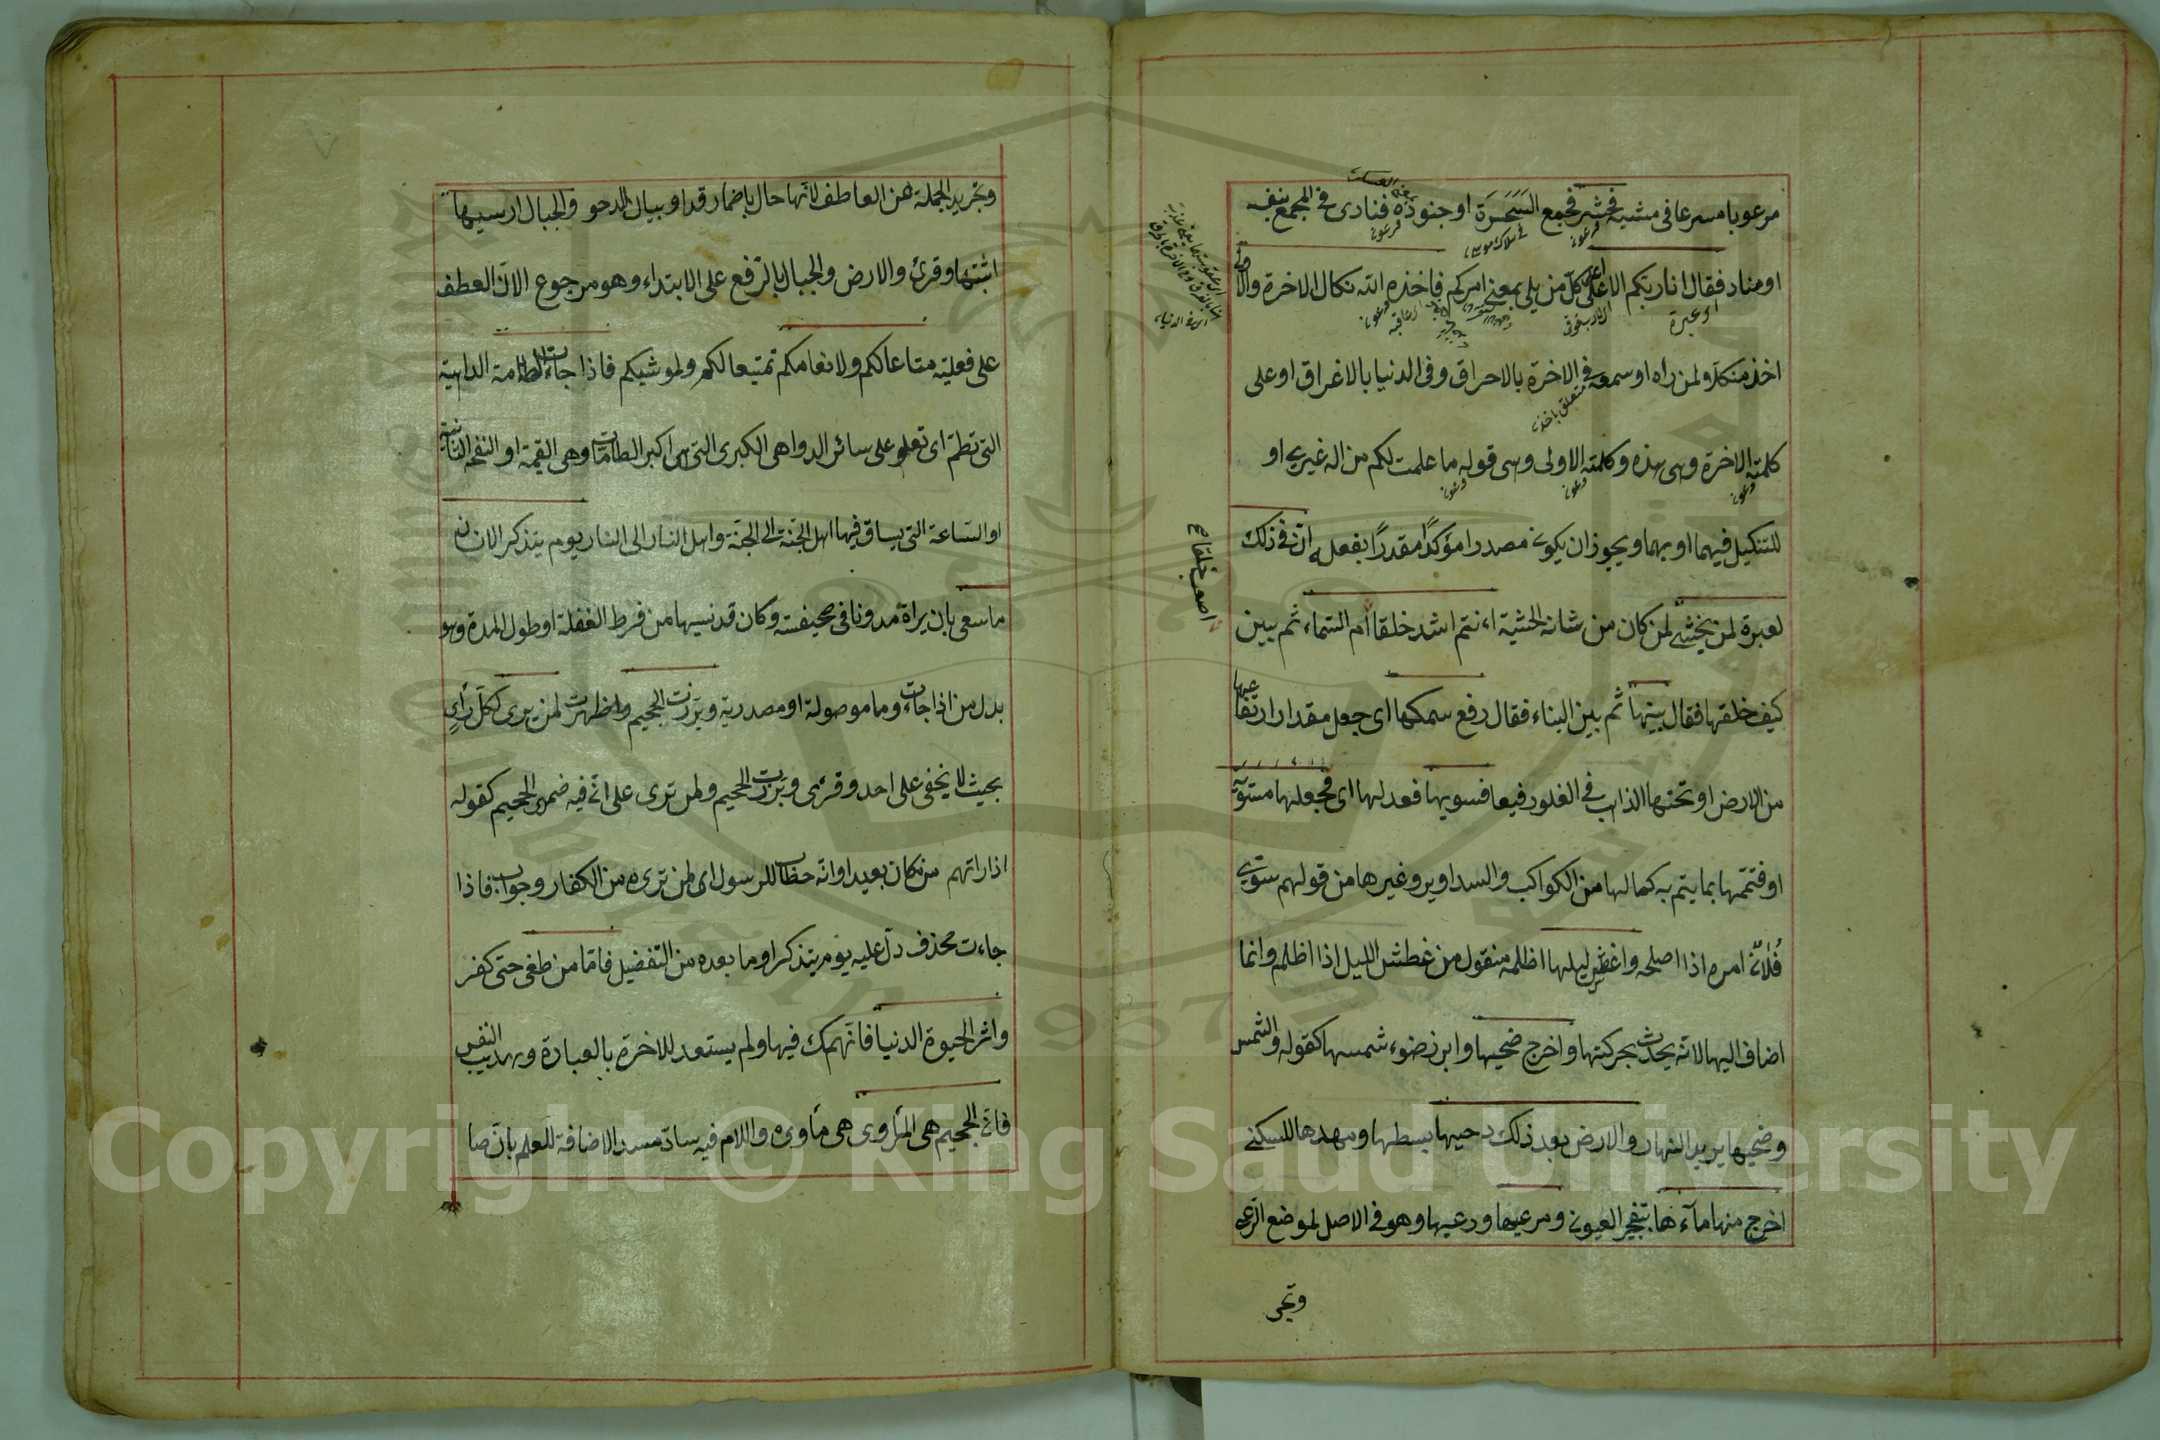 مرعوبا مسرعا فى مشيه فحشر فجمع السحرة او جنوده فنادى فى المجمع بنفسه
او مناد فقال انا ربكم الاعلى اعلى كل من يلى امركم فاخذه الله نكال الاخرة والاولى
اخذ منكلا لمن راه او سمعه فى الاخرة بالاحراق وفى الدنيا بالاغراق او على
كلمته الاخرة وهى هذه وكلمته الاولى وهى قوله ما علمت لكم من اله غيرى او
للتنكيل فيهما او بهما ويجوز ان يكون مصدرا مؤكدا مقدرا بفعله ان فى ذلك
لعبرة لمن يخشى لمن كان من شانه الخشية اءنتم اشد خلقا ام السماء ثم بين
كيف خلقها فقال بنيها ثم بين البناء فقال رفع سمكها اى جعل مقدار ارتفاعها
من الارض او ثخنها الذاهب فى العلو رفيعا فسويها فعدلها اى فجعلها مستوية
او فتممها بما يتم به كمالها من الكواكب والتداوير وغيرها من قولهم سوى
فلان امره اذا اصلحه واغطش ليلها اظلمه منقول من غطش الليل اذا اظلم وانما
اضاف اليها لانه يحدث بحركتها واخرج ضحيها وابرز ضوء شمسها كقوله والشمس
وضحيها يريد النهار والارض بعد ذلك دحيها بسطها ومهدها للسكنى
اخرج منها ماءها بتفجير العيون ومرعيها ورعيها وهو فى الاصل لموضع الرعى
وتجر
وتجريد الجملة عن العاطف لانها حال باضمار قد او بيان للدحو والجبال ارسيها
اثبتها وقرئ والارض والجبال بالرفع على الابتداء وهو مرجوع الان العطف
على فعلية متاعا لكم ولانعامكم تمتيعا لكم ولمواشيكم فاذا جاءت الطامة الداهية
التى تطم اى تعلو على سائر الدواهى الكبرى التى هى اكبر الطامات وهى القيمة او النفخة الثانية
او الساعة التى يساق فيها اهل الجنة الى الجنة واهل النار الى النار يوم يتذكر الانسان
ما سعى بان يراه مدونا فى صحيفته وكان قد نسيها من فرط الغفلة او طول المدة وهو
بدل من اذا جاءت وما موصولة او مصدرية وبرزت الجحيم واظهرت لمن يرى لكل راى
بحيث لا يخفى على احد وقرئ وبرزت الجحيم ولمن ترى على ان فيه ضمير الجحيم كقوله
اذا راتهم من مكان بعيد او انه خطاب للرسول اى لمن تره من الكفار وجواب فاذا
جاءت محذوف دل عليه يوم يتذكر او ما بعده من التفضيل فاما من طغى حتى كفر
واثر الحيوة الدنيا فانهمك فيها ولم يستعد للاخرة بالعبادة وتهذيب النفس
فان الجحيم هى الماوى هى ماويه واللام فيه ساد مسد الاضافة للعلم بان صا
اصعب خلقا
Copyright © King Saud University
1957